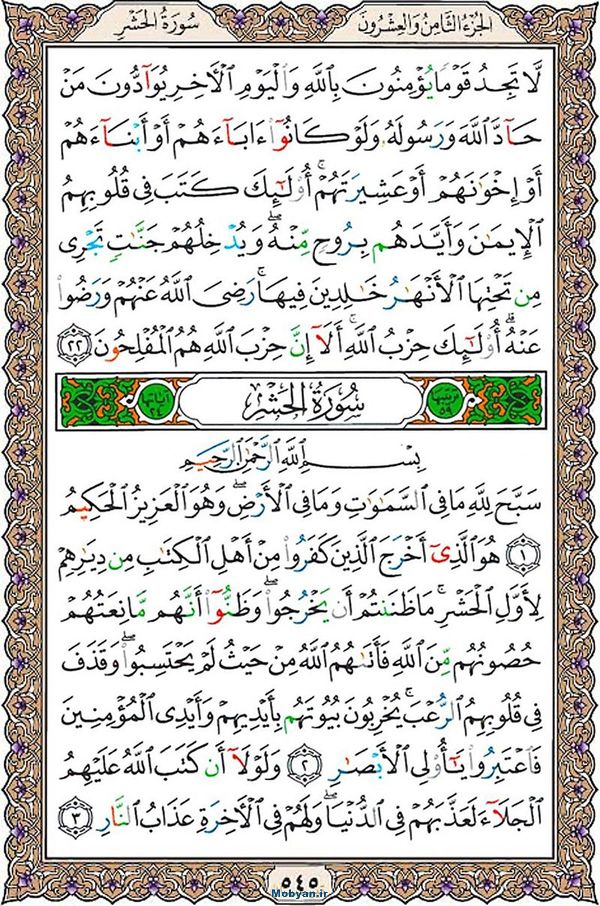 الجزء الثامن والعشرون
سورة الحشر
لَّا تَجِدُ قَوْمًا يُؤْمِنُونَ بِٱللَّهِ وَٱلْيَوْمِ ٱلْأَخِرِ يُوَآدُّونَ مَنْ
حَآدَّ ٱللَّهَ وَرَسُولَهُۥ وَلَوْ كَانُوٓا۟ ءَابَآءَهُمْ أَوْ أَبْنَآءَهُمْ
أَوْ إِخْوَٰنَهُمْ أَوْ عَشِيرَتَهُمْ ۚ أُو۟لَٰٓئِكَ كَتَبَ فِى قُلُوبِهِمُ
ٱلْإِيمَٰنَ وَأَيَّدَهُم بِرُوحٍ مِّنْهُ ۖ وَيُدْخِلُهُمْ جَنَّٰتٍ تَجْرِى
مِن تَحْتِهَا ٱلْأَنْهَٰرُ خَٰلِدِينَ فِيهَا ۚ رَضِىَ ٱللَّهُ عَنْهُمْ وَرَضُوا۟
عَنْهُ ۚ أُو۟لَٰٓئِكَ حِزْبُ ٱللَّهِ ۚ أَلَآ إِنَّ حِزْبَ ٱللَّهِ هُمُ ٱلْمُفْلِحُونَ ٢٢
ترتيبها ٥٩ سورة الحشر آياتها ٢٤
بِسْمِ ٱللَّهِ ٱلرَّحْمَٰنِ ٱلرَّحِيمِ
سَبَّحَ لِلَّهِ مَا فِى ٱلسَّمَٰوَٰتِ وَمَا فِى ٱلْأَرْضِ ۖ وَهُوَ ٱلْعَزِيزُ ٱلْحَكِيمُ
١ هُوَ ٱلَّذِىٓ أَخْرَجَ ٱلَّذِينَ كَفَرُوا۟ مِنْ أَهْلِ ٱلْكِتَٰبِ مِن دِيَٰرِهِمْ
لِأَوَّلِ ٱلْحَشْرِ ۚ مَا ظَنَنتُمْ أَن يَخْرُجُوا۟ ۖ وَظَنُّوٓا۟ أَنَّهُم مَّانِعَتُهُمْ
حُصُونُهُم مِّنَ ٱللَّهِ فَأَتَىٰهُمُ ٱللَّهُ مِنْ حَيْثُ لَمْ يَحْتَسِبُوا۟ ۖ وَقَذَفَ
فِى قُلُوبِهِمُ ٱلرُّعْبَ ۚ يُخْرِبُونَ بُيُوتَهُم بِأَيْدِيهِمْ وَأَيْدِى ٱلْمُؤْمِنِينَ
فَٱعْتَبِرُوا۟ يَٰٓأُو۟لِى ٱلْأَبْصَٰرِ ٢ وَلَوْلَآ أَن كَتَبَ ٱللَّهُ عَلَيْهِمُ
ٱلْجَلَآءَ لَعَذَّبَهُمْ فِى ٱلدُّنْيَا ۖ وَلَهُمْ فِى ٱلْأَخِرَةِ عَذَابُ ٱلنَّارِ ٣
٥٤٥
Mobyan.ir